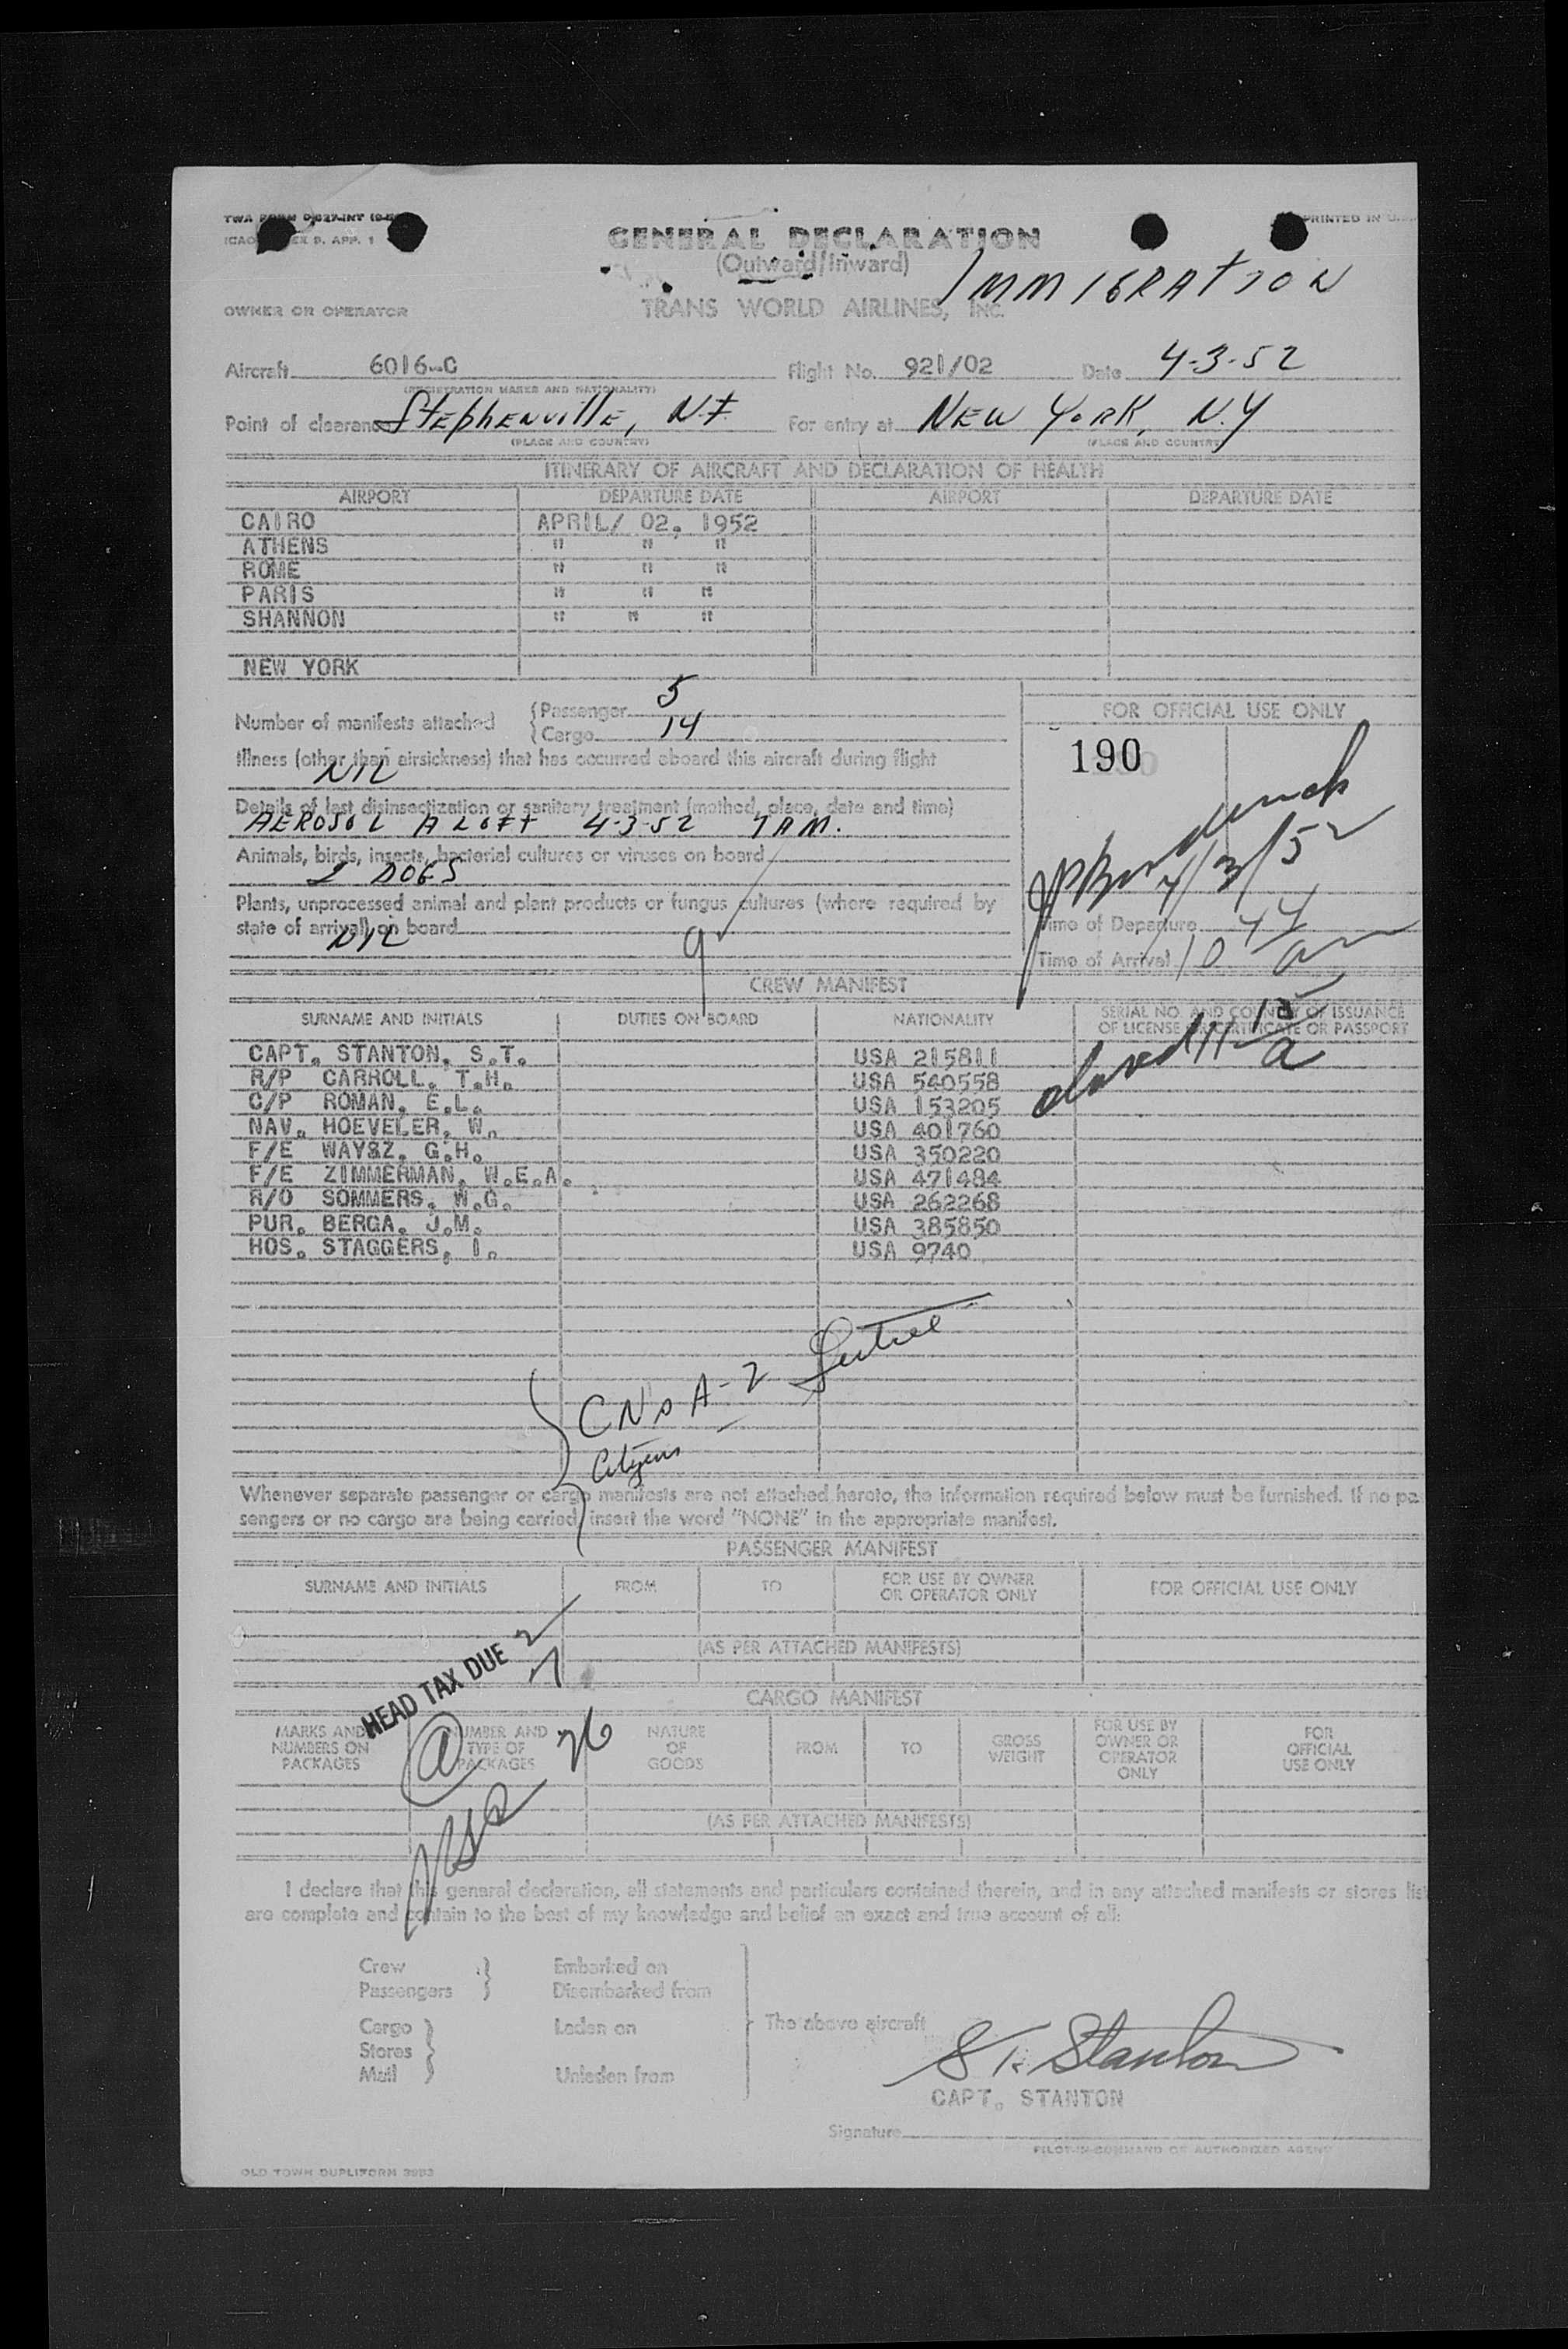 GENERAL DECLARATION
(Outward/Inward)
IMMIGRATION
OWNER OR OPERATOR TRANS WORLD AIRLINES, INC.
Aircraft 6016-C Flight No. 921/02 Date 4-3-52
(REGISTRATION MARKS AND NATIONALITY)
Point of clearance Stephenville, N.F. For entry at New York, N.Y
(PLACE AND COUNTRY) (PLACE AND COUNTRY)
ITINERARY OF AIRCRAFT AND DECLARATION OF HEALTH
AIRPORT DEPARTURE DATE AIRPORT DEPARTURE DATE
CAIRO APRIL/ 02, 1952
ATHENS " " "
ROME " " "
PARIS " " "
SHANNON " " "
NEW YORK
Number of manifests attached {Passenger 5
{Cargo 14
FOR OFFICIAL USE ONLY
190
Illness (other than airsickness) that has occurred aboard this aircraft during flight
NIL
Details of last disinsectization or sanitary treatment (method, place, date and time)
AEROSOL ALOFT 4-3-52 7AM.
Animals, birds, insects, bacterial cultures or viruses on board
2 DOGS
Plants, unprocessed animal and plant products or fungus cultures (where required by
state of arrival) on board
NIL
9
4/3/52
Time of Departure
Time of Arrival 10 44 am
CREW MANIFEST
SURNAME AND INITIALS DUTIES ON BOARD NATIONALITY SERIAL NO. AND COUNTRY OF ISSUANCE
OF LICENSE OR CERTIFICATE OR PASSPORT
closed 11 15 a
CAPT. STANTON, S.T. USA 215811
R/P CARROLL, T.H. USA 540558
C/P ROMAN, E.L. USA 153205
NAV. HOEVELER, W. USA 401760
F/E WAY&Z, G.H. USA 350220
F/E ZIMMERMAN, W.E.A. USA 471484
R/O SOMMERS, W.G. USA 262268
PUR. BERGA, J.M. USA 385850
HOS. STAGGERS, I. USA 9740
A-2
Citizens
Whenever separate passenger or cargo manifests are not attached hereto, the information required below must be furnished. If no pa
sengers or no cargo are being carried, insert the word "NONE" in the appropriate manifest.
PASSENGER MANIFEST
SURNAME AND INITIALS FROM TO FOR USE BY OWNER
OR OPERATOR ONLY FOR OFFICIAL USE ONLY
(AS PER ATTACHED MANIFESTS)
HEAD TAX DUE 2
CARGO MANIFEST
MARKS AND
NUMBERS ON
PACKAGES NUMBER AND
TYPE OF
PACKAGES NATURE
OF
GOODS FROM TO GROSS
WEIGHT FOR USE BY
OWNER OR
OPERATOR
ONLY FOR
OFFICIAL
USE ONLY
26
(AS PER ATTACHED MANIFESTS)
I declare that this general declaration, all statements and particulars contained therein, and in any attached manifests or stores list
are complete and contain to the best of my knowledge and belief an exact and true account of all:
Crew } Embarked on
Passengers } Disembarked from
Cargo } Laden on The above aircraft
Stores }
Mail } Unladen from
S.T. Stanton
CAPT. STANTON
Signature
PILOT-IN-COMMAND OR AUTHORIZED AGENT
OLD TOWN DUPLIFORM